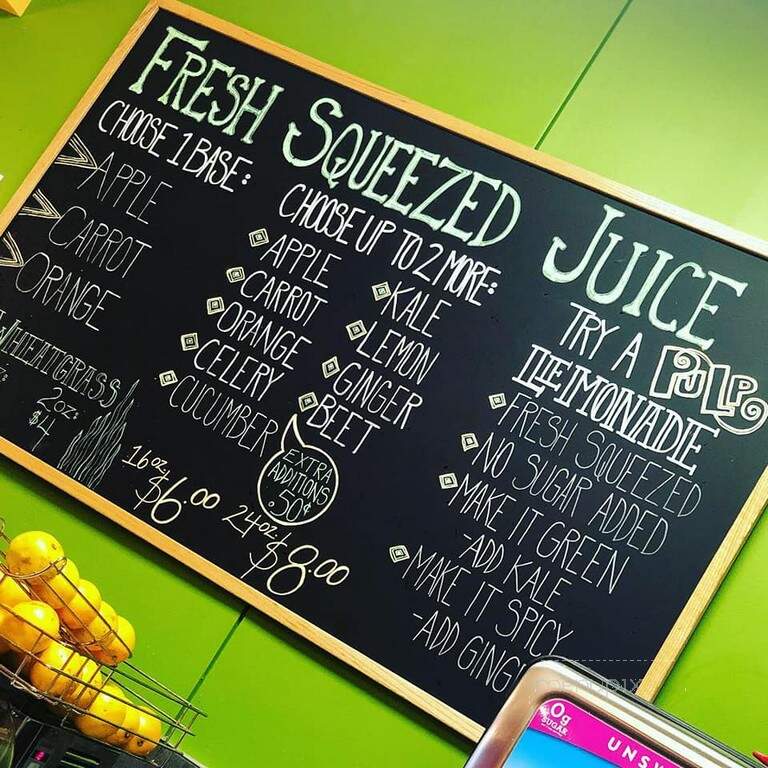 FRESH SQUEEZED JUICE
CHOOSE 1 BASE:
APPLE
CARROT
ORANGE
WHEATGRASS
2oz
$4
CHOOSE UP TO 2 MORE:
APPLE
CARROT
ORANGE
CELERY
CUCUMBER
KALE
LEMON
GINGER
BEET
EXTRA
ADDITIONS
.50¢
16oz
$6.00
24oz
$8.00
TRY A PULP
LEMONADE
FRESH SQUEEZED
NO SUGAR ADDED
MAKE IT GREEN
-ADD KALE
MAKE IT SPICY
-ADD GING
0g
SUGAR
UNS